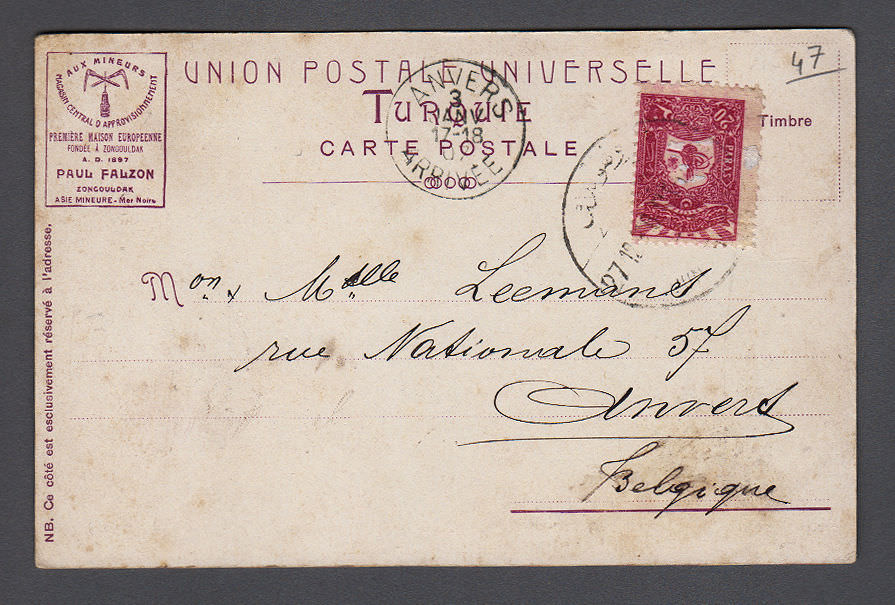 AUX MINEURS
MAGASIN CENTRAL D'APPROVISIONNEMENT
PREMIÈRE MAISON EUROPEENNE
FONDÉE À ZONGOULDAK
A. D. 1897
PAUL FALZON
ZONGOULDAK
ASIE MINEURE - Mer Noire
UNION POSTALE UNIVERSELLE
TURQUIE
CARTE POSTALE
ANVERS
3
JANV
17-18
07
ARRIVÉE
47
Timbre
20
PARAS
27 12
Mon x Mlle Leemans
rue Nationale 57
Anvers
Belgique
NB. Ce côté est exclusivement réservé à l'adresse.